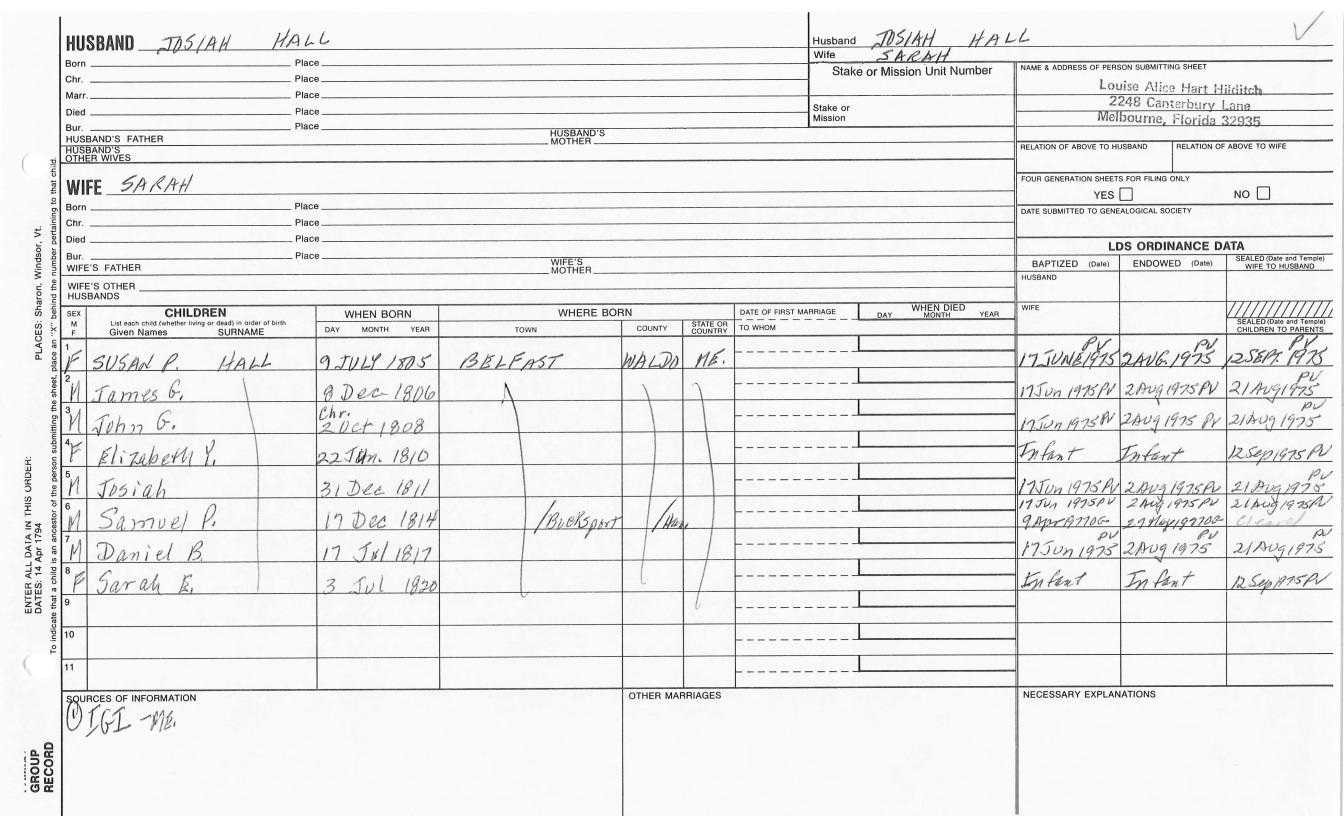 HUSBAND JOSIAH HALL
Born Place
Chr. Place
Marr. Place
Died Place
Bur. Place
HUSBAND'S FATHER HUSBAND'S MOTHER
HUSBAND'S OTHER WIVES
Husband JOSIAH HALL
Wife SARAH
Stake or Mission Unit Number
Stake or Mission
NAME & ADDRESS OF PERSON SUBMITTING SHEET
Louise Alice Hart Hilditch
2248 Canterbury Lane
Melbourne, Florida 32935
RELATION OF ABOVE TO HUSBAND RELATION OF ABOVE TO WIFE
FOUR GENERATION SHEETS FOR FILING ONLY
YES NO
DATE SUBMITTED TO GENEALOGICAL SOCIETY
WIFE SARAH
Born Place
Chr. Place
Died Place
Bur. Place
WIFE'S FATHER WIFE'S MOTHER
WIFE'S OTHER HUSBANDS
LDS ORDINANCE DATA
BAPTIZED (Date) ENDOWED (Date) SEALED (Date and Temple) WIFE TO HUSBAND
HUSBAND
WIFE
SEALED (Date and Temple) CHILDREN TO PARENTS
SEX M F CHILDREN WHEN BORN WHERE BORN DATE OF FIRST MARRIAGE WHEN DIED
List each child (whether living or dead) in order of birth
Given Names SURNAME DAY MONTH YEAR TOWN COUNTY STATE OR COUNTRY TO WHOM DAY MONTH YEAR
1 F SUSAN P. HALL 9 JULY 1805 BELFAST WALDO ME. 17 JUNE 1975 PV 2 AUG. 1975 PV 12 SEPT. 1975 PV
2 M James G. 8 Dec 1806 17 Jun 1975 PV 2 Aug 1975 PV 21 Aug 1975 PV
3 M John G. Chr. 2 Oct 1808 17 Jun 1975 PV 2 Aug 1975 PV 21 Aug 1975 PV
4 F Elizabeth Y. 22 Jan. 1810 Infant Infant 12 Sep 1975 PV
5 M Josiah 31 Dec 1811 17 Jun 1975 PV 2 Aug 1975 PV 21 Aug 1975 PV
6 M Samuel P. 17 Dec 1814 /Bucksport /Han. 17 Jun 1975 PV 2 Aug 1975 PV 21 Aug 1975
9 Apr 1977 OG 27 May 1977 OG Cleared
7 M Daniel B. 17 Jul 1817 17 Jun 1975 PV 2 Aug 1975 PV 21 Aug 1975 PV
8 F Sarah E. 3 Jul 1820 Infant Infant 12 Sep 1975 PV
9
10
11
SOURCES OF INFORMATION OTHER MARRIAGES NECESSARY EXPLANATIONS
① IGI - ME.
PLACES: Sharon, Windsor, Vt.
ENTER ALL DATA IN THIS ORDER:
DATES: 14 Apr 1794
To indicate that a child is an ancestor of the person submitting the sheet, place an "X" behind the number pertaining to that child.
GROUP
RECORD